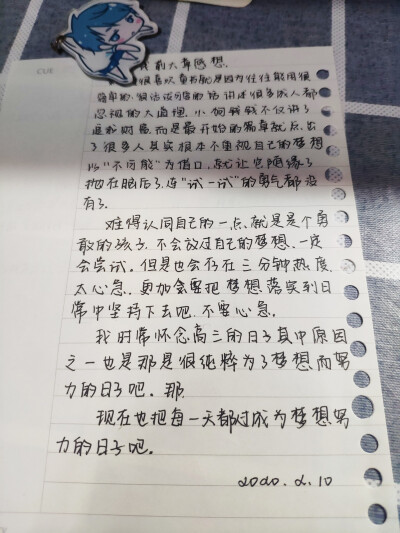 CUE
前六章感想.
很喜欢童书就是因为往往能用很
简单的,很活泼可爱的话讲述很多成人都
忽视的大道理.小狗钱钱不仅讲了
理财,而是最开始的篇章就点出
了很多人其实根本不重视自己的梦想
以"不可能"为借口,就让它随缘了
抛在脑后了,连"试一试"的勇气都没
有了.
难得认同自己的一点,就是是个勇
敢的孩子,不会放过自己的梦想.一定
会尝试.但是也会存在三分钟热度.
太心急.更加会要把梦想落实到日
常中坚持下去吧.不要心急.
我时常怀念高三的日子其中原因
之一也是那是很纯粹为了梦想而努
力的日子吧.那.
现在也把每一天都过成为梦想努
力的日子吧.
2020.2.10